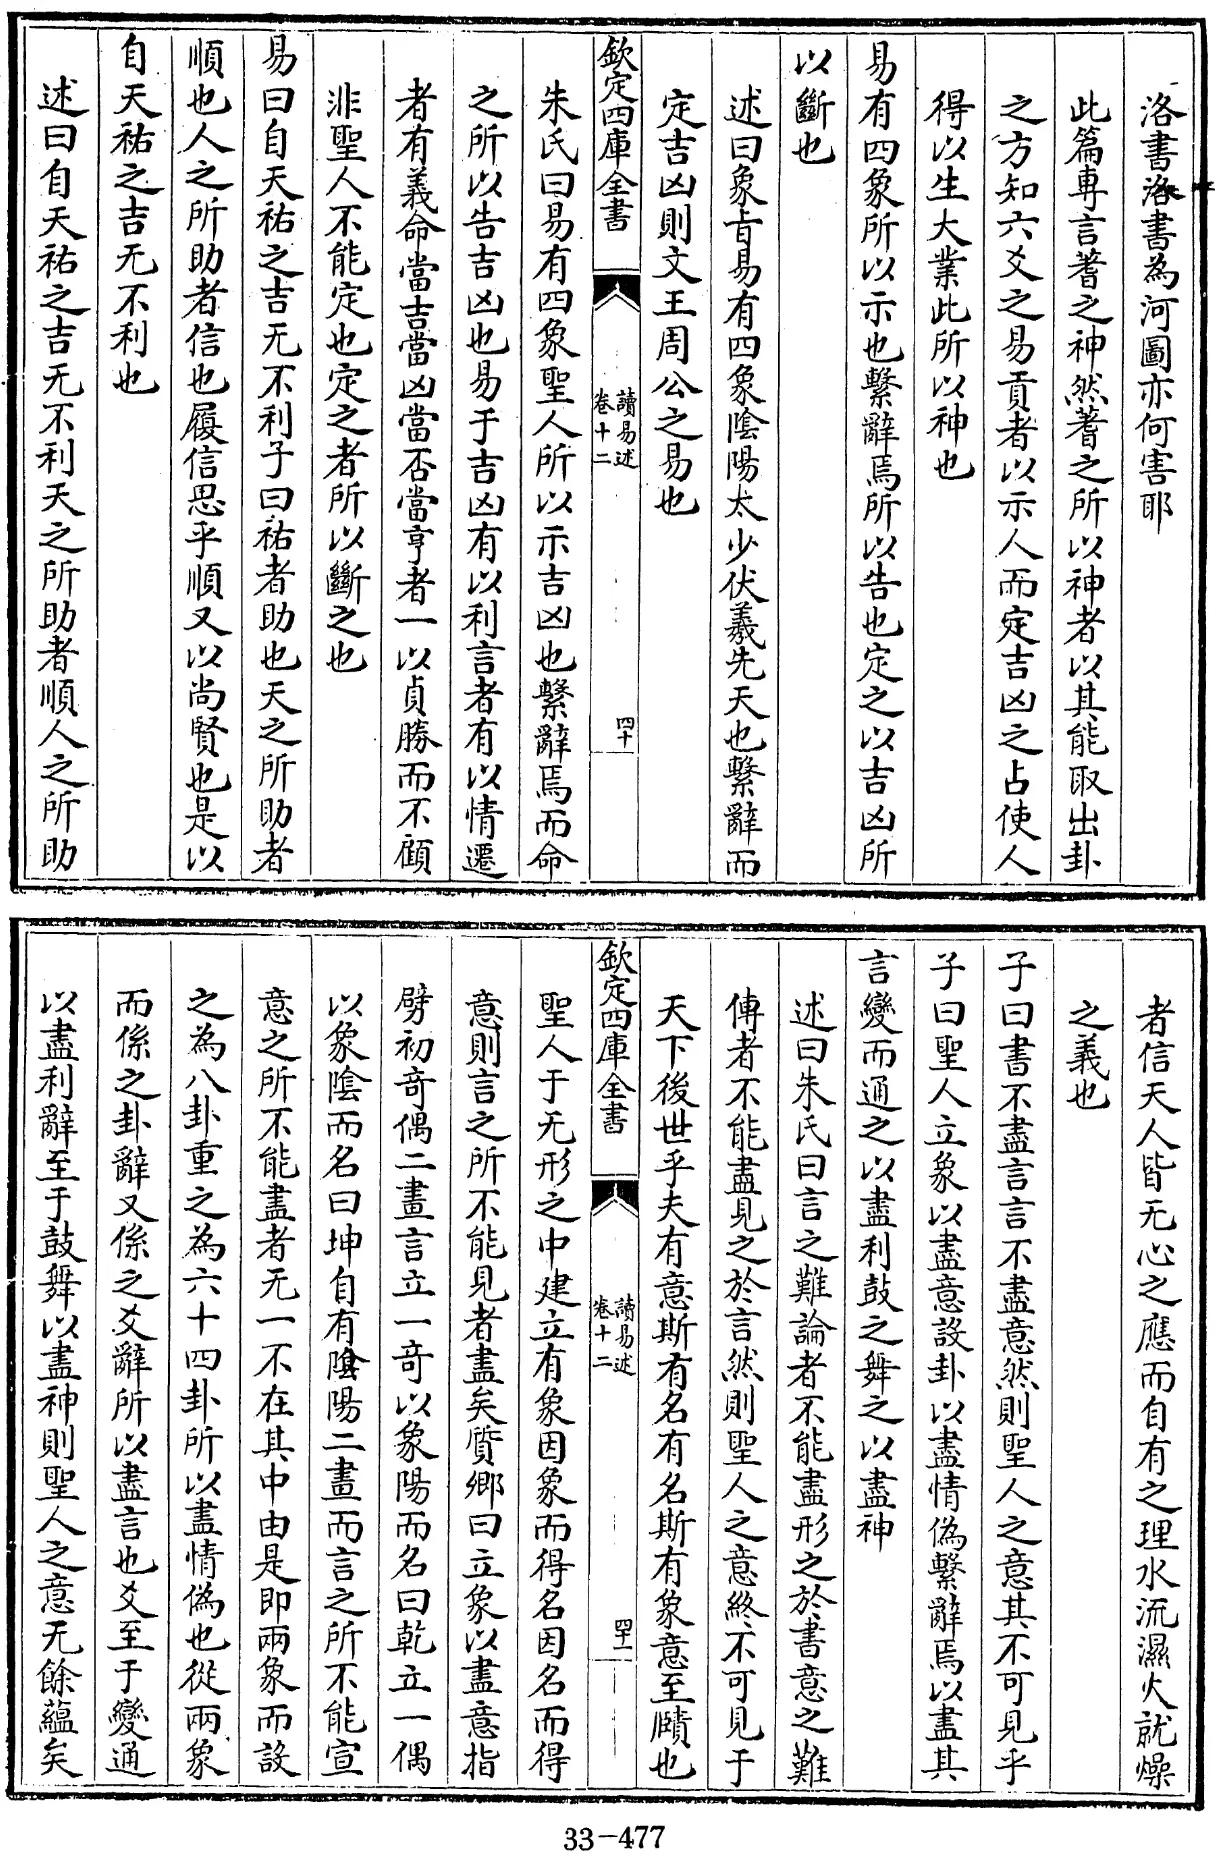 洛書洛書為河圖亦何害耶
此篇專言蓍之神然蓍之所以神者以其能取出卦
之方知六爻之易貢者以示人而定吉凶之占使人
得以生大業此所以神也
易有四象所以示也繫辭焉所以告也定之以吉凶所
以斷也
述曰象㫖易有四象陰陽太少伏羲先天也繫辭而
定吉凶則文王周公之易也
欽定四庫全書
讀易述
卷十二
四十
朱氏曰易有四象聖人所以示吉凶也繫辭焉而命
之所以告吉凶也易于吉凶有以利言者有以情遷
者有義命當吉當凶當否當亨者一以貞勝而不顧
非聖人不能定也定之者所以斷之也
易曰自天祐之吉无不利子曰祐者助也天之所助者
順也人之所助者信也履信思乎順又以尚賢也是以
自天祐之吉无不利也
述曰自天祐之吉无不利天之所助者順人之所助
者信天人皆无心之應而自有之理水流濕火就燥
之義也
子曰書不盡言言不盡意然則聖人之意其不可見乎
子曰聖人立象以盡意設卦以盡情偽繫辭焉以盡其
言變而通之以盡利鼓之舞之以盡神
述曰朱氏曰言之難論者不能盡形之於書意之難
傳者不能盡見之於言然則聖人之意終不可見于
天下後世乎夫有意斯有名有名斯有象意至賾也
欽定四庫全書
讀易述
卷十二
四十一
聖人于无形之中建立有象因象而得名因名而得
意則言之所不能見者盡矣質卿曰立象以盡意指
劈初奇偶二畫言立一奇以象陽而名曰乾立一偶
以象陰而名曰坤自有陰陽二畫而言之所不能宣
意之所不能盡者无一不在其中由是即兩象而設
之為八卦重之為六十四卦所以盡情偽也從兩象
而係之卦辭又係之爻辭所以盡言也爻至于變通
以盡利辭至于鼓舞以盡神則聖人之意无餘蘊矣
33-477